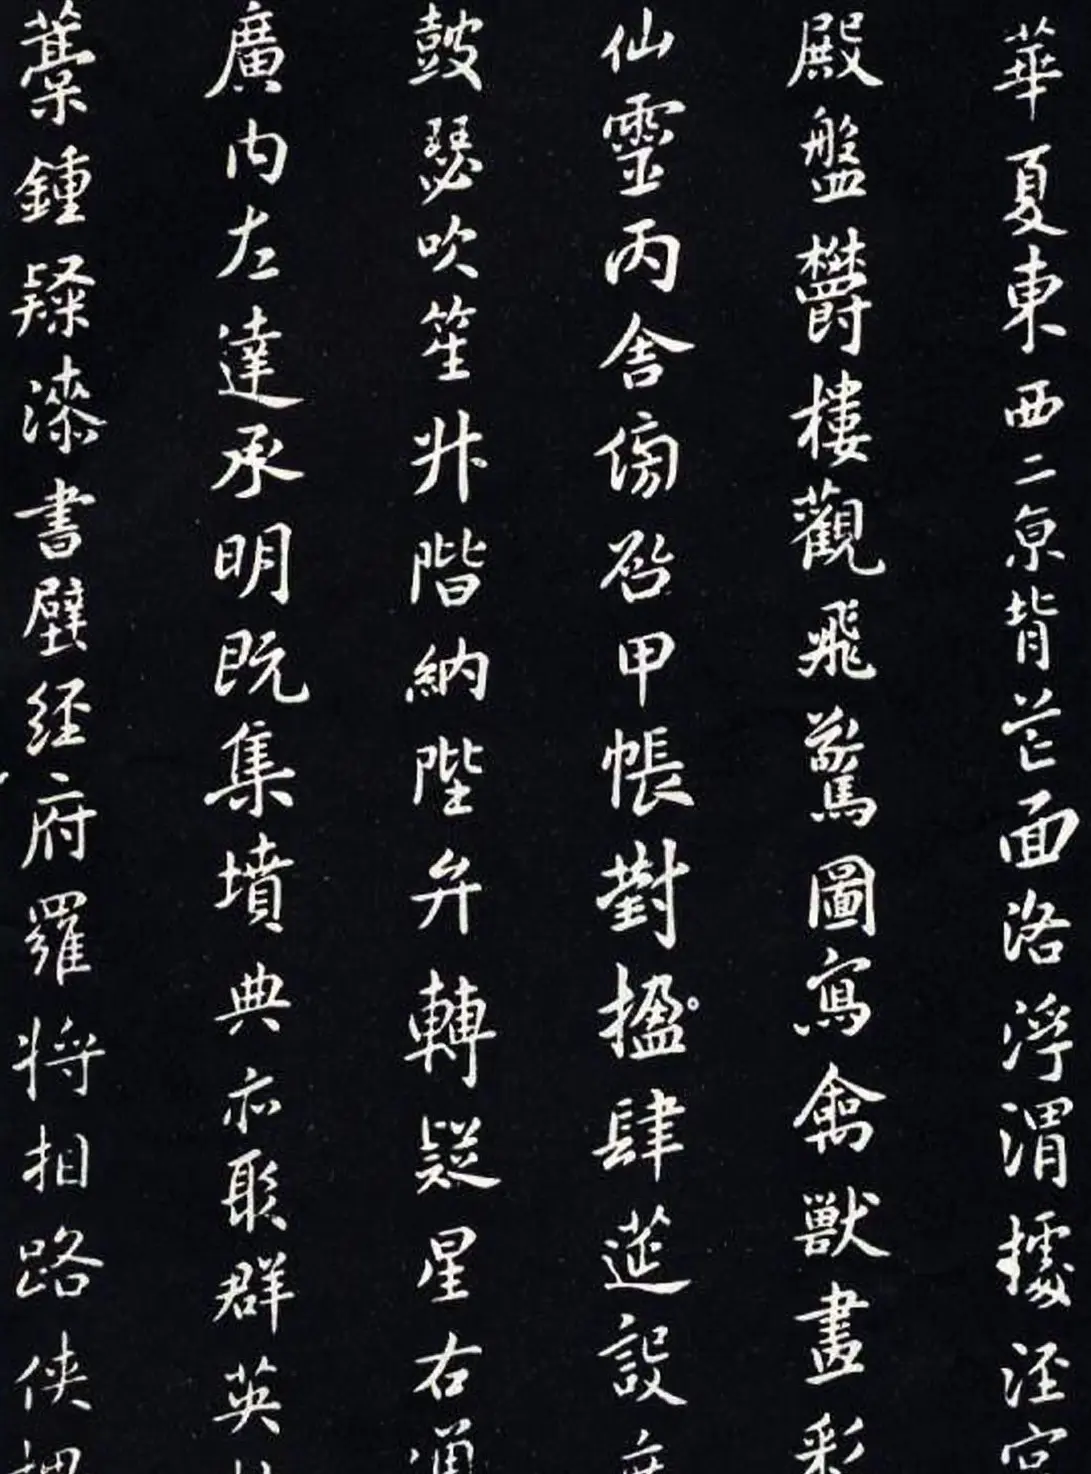 華夏東西二京背芒面洛浮渭據涇宮
殿盤欝樓觀飛驚圖寫禽獸畫彩
仙靈丙舍傍啓甲帳對楹肆莚設席
鼓瑟吹笙升階納陛弁轉疑星右通
廣内左達承明既集墳典亦聚群英杜
藁鍾隸漆書壁經府羅將相路俠槐